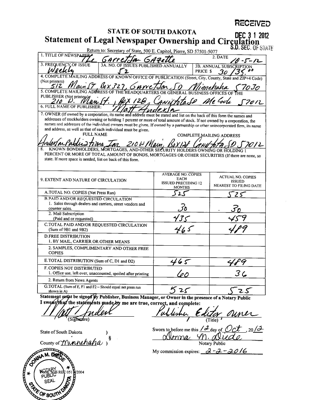 RECEIVED
DEC 31 2012
S.D. SEC. OF STATE
STATE OF SOUTH DAKOTA
Statement of Legal Newspaper Ownership and Circulation
Return to: Secretary of State, 500 E. Capitol, Pierre, SD 57501-5077
1. TITLE OF NEWSPAPER The Garretson Gazette
2. DATE 10-5-12
3. FREQUENCY OF ISSUE Weekly
3A. NO. OF ISSUES PUBLISHED ANNUALLY 52
3B. ANNUAL SUBSCRIPTION PRICE $ 30/35
4. COMPLETE MAILING ADDRESS OF KNOWN OFFICE OF PUBLICATION (Street, City, County, State and ZIP+4 Code) (Not printers)
512 Main St Box 327, Garretson SD Minnehaha 57030
5. COMPLETE MAILING ADDRESS OF THE HEADQUARTERS OR GENERAL BUSINESS OFFICES OF THE PUBLISHER (Not printers)
210 Main St. Box 128, Canistota SD McCook 57012
6. FULL NAME OF PUBLISHER: Matt Anderson
7. OWNER (If owned by a corporation, its name and address must be stated and
FULL NAME
COMPLETE MAILING ADDRESS
Anderson Publications Inc. 210 Main, Box 128 Canistota SD 57012
8. KNOWN BONDHOLDERS, MORTGAGES, AND OTHER SECURITY HOLDERS OWNING OR HOLDING 1 PERCENT OR MORE OF TOTAL AMOUNT OF BONDS, MORTGAGES OR OTHER SECURITIES
9. EXTENT AND NATURE OF CIRCULATION
AVERAGE NO. COPIES EACH ISSUED PRECEDING 12 MONTHS
ACTUAL NO. COPIES ISSUED NEAREST TO FILING DATE
A. TOTAL NO. COPIES (Net Press Run) 525 525
B. PAID AND/OR REQUESTED CIRCULATION
1. Sales through dealers and carriers, street vendors and counter sales 30 30
2. Mail Subscription (Paid and or requested) 435 459
C. TOTAL PAID AND/OR REQUESTED CIRCULATION (Sum of 9B1 and 9B2) 465 489
D. FREE DISTRIBUTION
1. BY MAIL, CARRIER OR OTHER MEANS
2. SAMPLES, COMPLIMENTARY AND OTHER FREE COPIES
E. TOTAL DISTRIBUTION (Sum of C, D1 and D2) 465 489
F. COPIES NOT DISTRIBUTED
1. Office use, left over, unaccounted, spoiled after printing 60 36
2. Return from News Agents
G. TOTAL (Sum of E, F1 and F2 - Should equal net press run shown in A) 525 525
Statement must be signed by Publisher, Business Manager, or Owner in the presence of a Notary Public
I swear that the statements made by me are true, correct, and complete:
(Signature)
Publisher, Editor owner
(Title)
State of South Dakota )
County of Minnehaha )
Sworn to before me this 12 day of Oct, 2012
Donna M. Dude
Notary Public
My commission expires: 2-2-2016
DONNA M.
NOTARY PUBLIC
SEAL
SOUTH DAKOTA